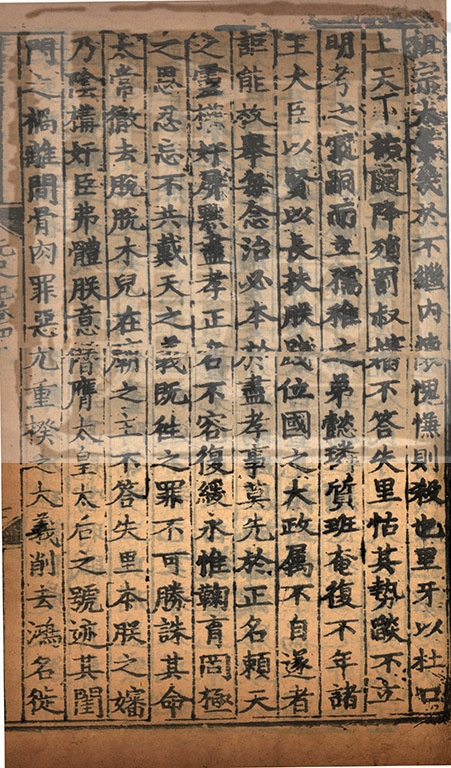 祖宗大業幾於不繼内懷愧慊則殺也里牙以杜口
上天不祐隨降殞罰叔嬸不答失里怙其勢燄不立
明考之冡嗣而立孺稚之弟懿璘質班奄復不年諸
王大臣以賢以長扶朕踐位國之大政屬不自遂者
詎能枚舉每念治必本於盡孝事莫先於正名賴天
之靈權奸屏黜盡孝正名不容復緩永惟鞠育罔極
之恩忍忘不共戴天之義既徃之罪不可勝誅其命
太常徹去脫脫木兒在廟之主不答失里本朕之嬸
乃陰搆奸臣弗體朕意僭膺太皇太后之號迹其閨
門之禍離間骨肉罪惡尤重揆之大義削去鴻名徙